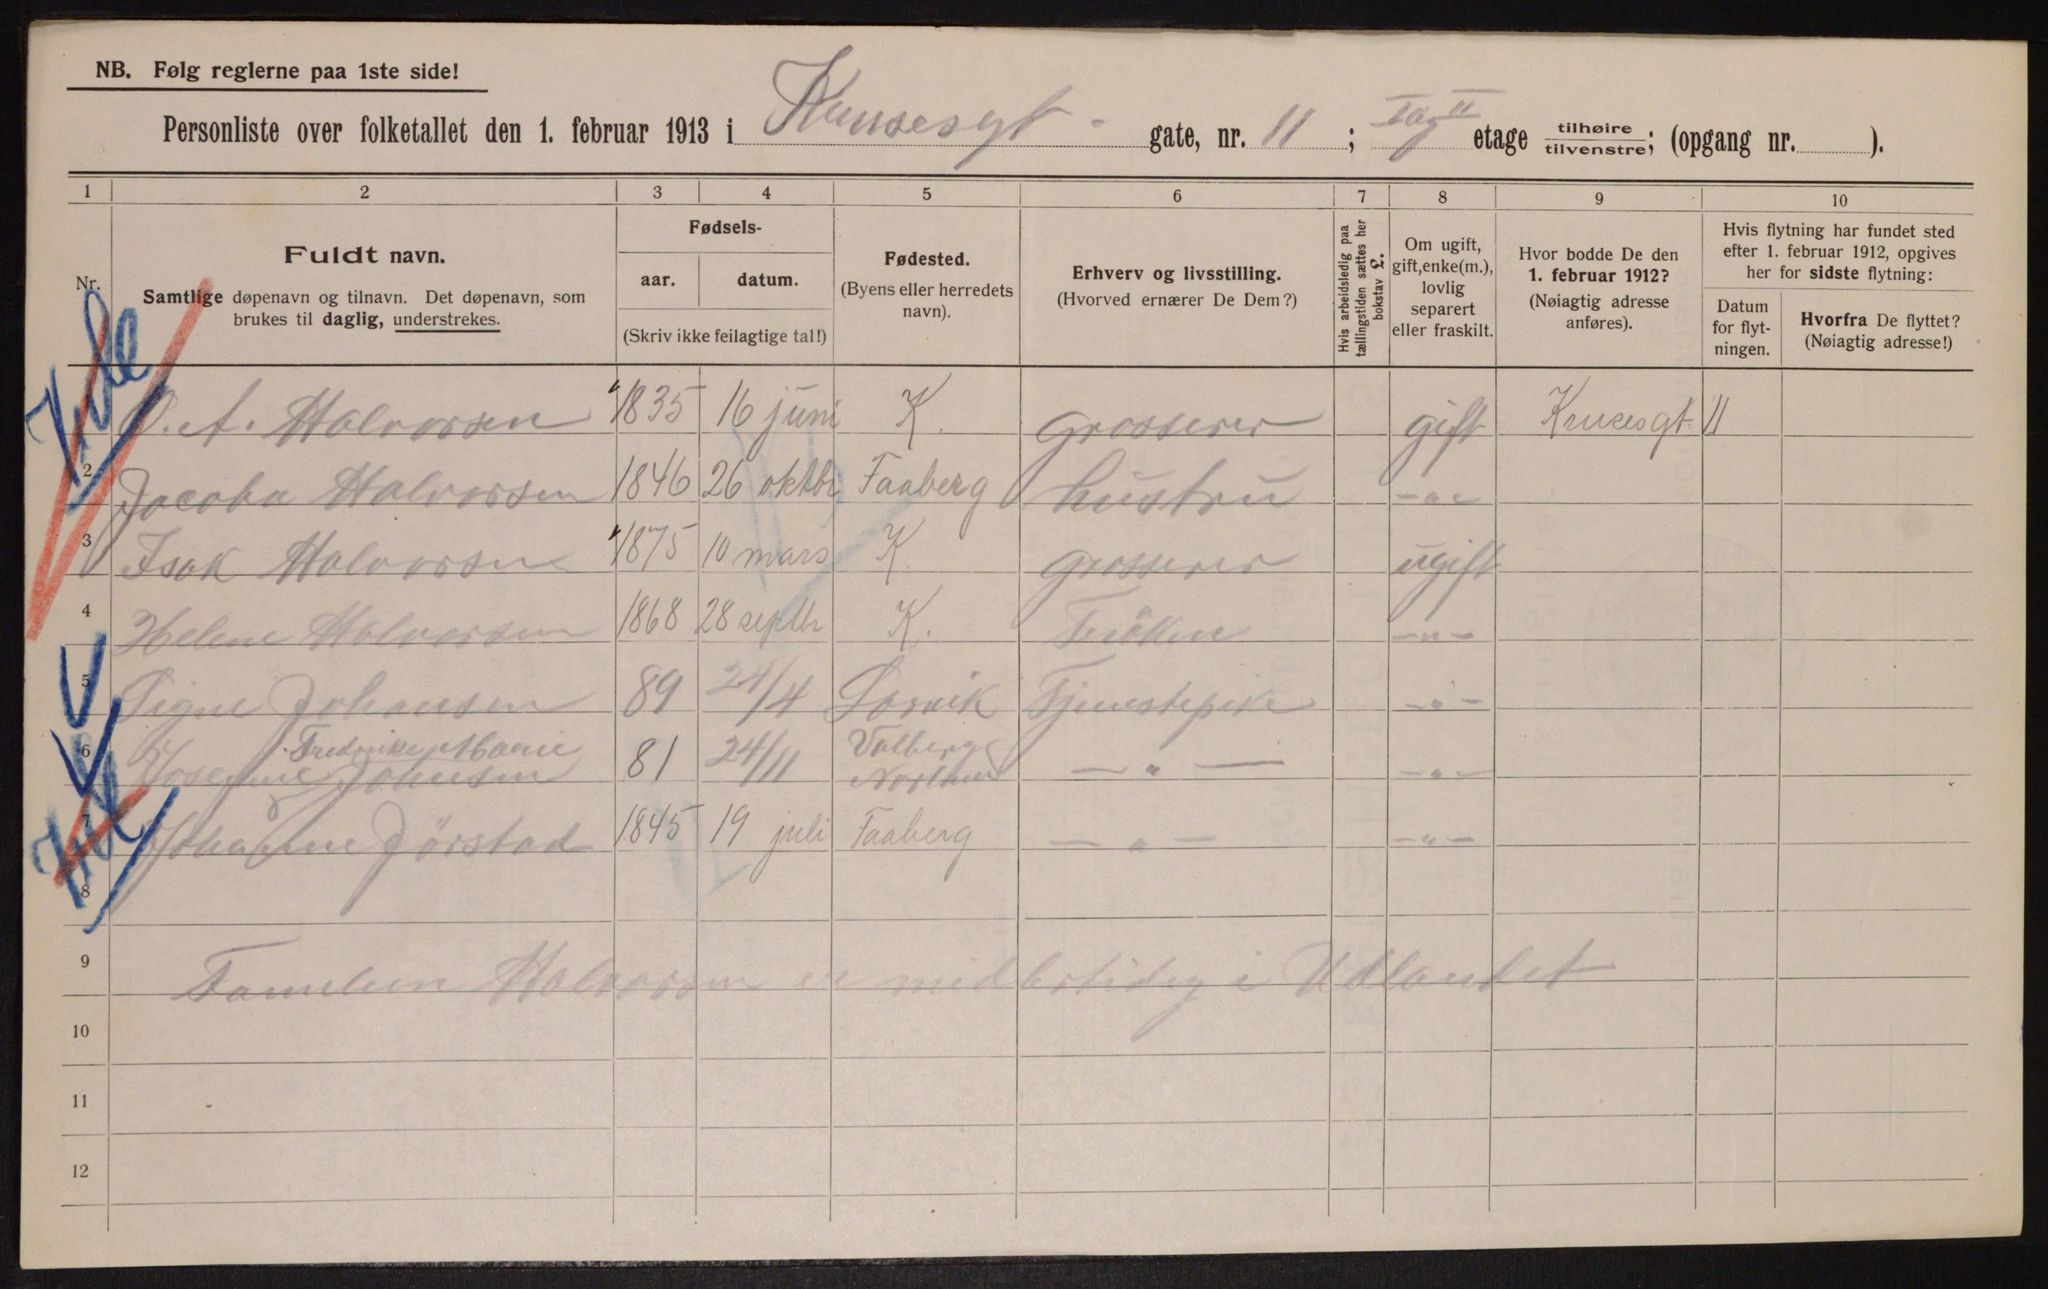 NB. Følg reglerne paa 1ste side!
Personliste over folketallet den 1. februar 1913 i Krusesgt. gate, nr. 11; I og II etage tilhøire tilvenstre; (opgang nr. ).
1 2 3 4 5 6 7 8 9 10
Nr.
Fuldt navn.
Samtlige døpenavn og tilnavn. Det døpenavn, som
brukes til daglig, understrekes.
Fødsels-
aar. datum.
(Skriv ikke feilagtige tal!)
Fødested.
(Byens eller herredets
navn).
Erhverv og livsstilling.
(Hvorved ernærer De Dem?)
Hvis arbeidsledig paa
tællingstiden sættes her
bokstav L.
Om ugift,
gift, enke(m.),
lovlig
separert
eller fraskilt.
Hvor bodde De den
1. februar 1912?
(Nøiagtig adresse
anføres).
Hvis flytning har fundet sted
efter 1. februar 1912, opgives
her for sidste flytning:
Datum
for flyt-
ningen.
Hvorfra De flyttet?
(Nøiagtig adresse!)
O. A. Halvorsen 1835 16 juni K. Grosserer gift Krusesgt. 11
2 Jacoba Halvorsen 1846 26 oktbr Faaberg Hustru -"-
3 Isak Halvorsen 1875 10 mars K. Grosserer ugift
4 Helene Halvorsen 1868 28 septbr K. Fröken -"-
5 Signe Johansen 89 24/4 Larvik Tjenestepike -"-
Frederikke Marie
6 Johnsen 81 24/11 Valberg -"- -"-
7 Johanne Jörstad 1845 19 juli Faaberg -"- -"-
8
9 Familien Halvorsen er midlertidig i Udlandet
10
11
12